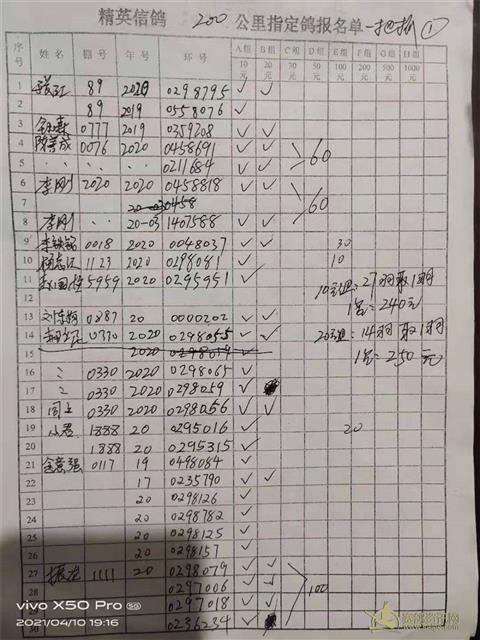 精英信鸽 200 公里指定鸽报名单 一把抓 ①
序号 姓名 棚号 年号 环号 A组 B组 C组 D组 E组 F组 G组 H组
10元 20元 30元 50元 100元 200元 500元 1000元
1 89 2020 0298795 ✓ ✓
2 89 2019 0558076 ✓
3 0777 2019 0359208 ✓ ✓
4 0076 2020 0458691 ✓ ✓
5 0211684 ✓ ✓ 60
6 李刚 2020 2020 0458818 ✓ ✓
7 60
8 李刚 20-03 1407588 ✓ ✓
9 李铁铭 0018 2020 0048037 ✓ ✓ 30
10 1123 2020 0298081 ✓ 10
11 5959 2020 0295951 ✓
12 10元组:27羽取1羽
1名:240元
13 0887 20 0000202 ✓ ✓
14 0330 2020 0298055 ✓ ✓ 20元组:14羽取1羽
15 2020 ✓ 1名:250元
16 0330 2020 0298065 ✓
17 0330 2020 0298059 ✓
18 同上 0330 2020 0298056 ✓ ✓
19 小君 1888 20 0295016 ✓ 20
20 1888 20 0295315 ✓
21 金意强 0117 19 0498084 ✓
22 17 0235790 ✓ ✓
23 20 0298126 ✓
24 20 0298782 ✓
25 20 0298125 ✓
26 20 0298157 ✓
27 振龙 1111 20 0298079 ✓ ✓
28 0297006 ✓ ✓ 100
0297018 ✓ ✓
0236234 ✓
vivo X50 Pro
2021/04/10 19:16